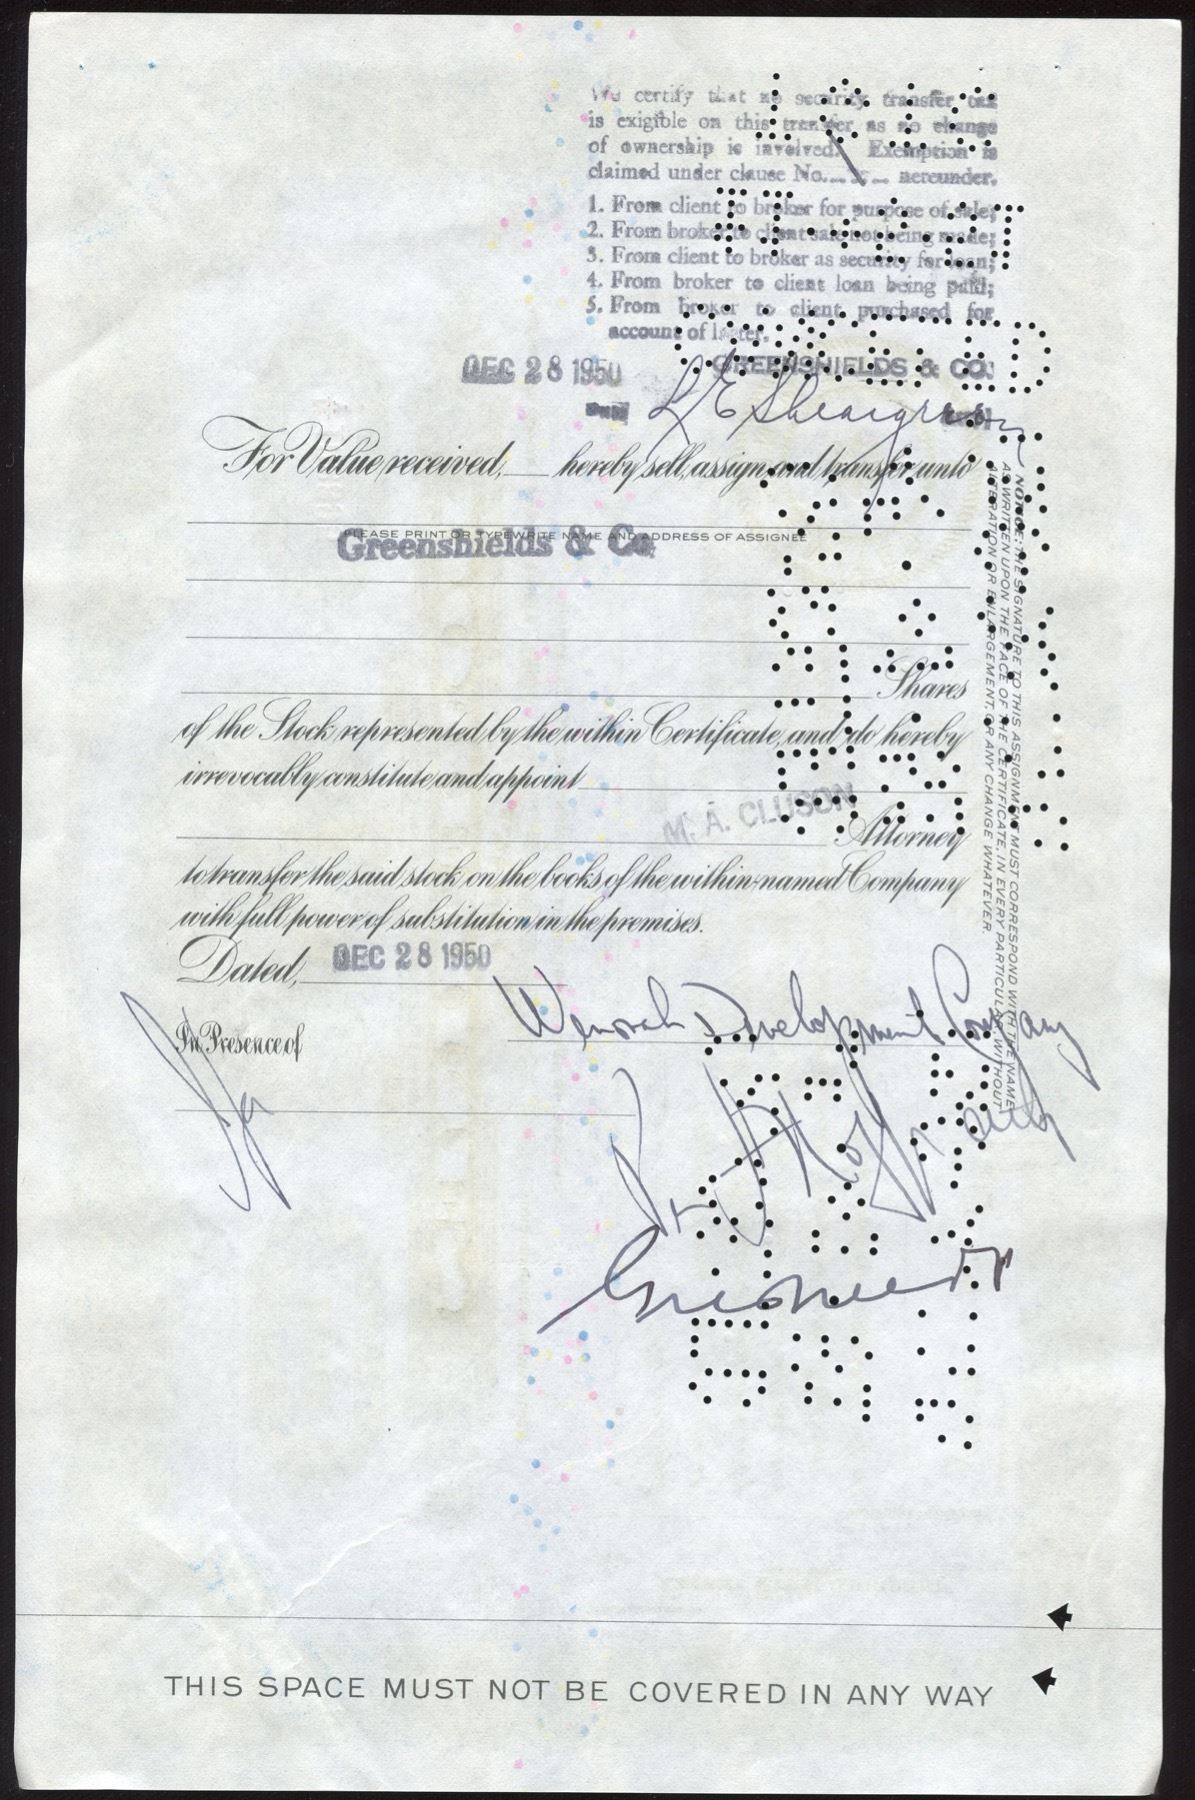 We certify that no security transfer tax
is exigible on this transfer as no change
of ownership is involved. Exemption is
claimed under clause No. hereunder.
1. From client to broker for purpose of sale;
2. From broker to client sale not being made;
3. From client to broker as security for loan;
4. From broker to client loan being paid;
5. From broker to client purchased for
account of latter.
DEC 28 1950 GREENSHIELDS & CO.
For Value received, hereby sell, assign and transfer unto
PLEASE PRINT OR TYPEWRITE NAME AND ADDRESS OF ASSIGNEE
Greenshields & Co.
Shares
of the Stock represented by the within Certificate, and do hereby
irrevocably constitute and appoint
M. A. CLUSON
Attorney
to transfer the said stock on the books of the within-named Company
with full power of substitution in the premises.
Dated, DEC 28 1950
Development Company
In Presence of
NOTICE: THE SIGNATURE TO THIS ASSIGNMENT MUST CORRESPOND WITH THE NAME
AS WRITTEN UPON THE FACE OF THE CERTIFICATE, IN EVERY PARTICULAR, WITHOUT
ALTERATION OR ENLARGEMENT, OR ANY CHANGE WHATEVER.
THIS SPACE MUST NOT BE COVERED IN ANY WAY